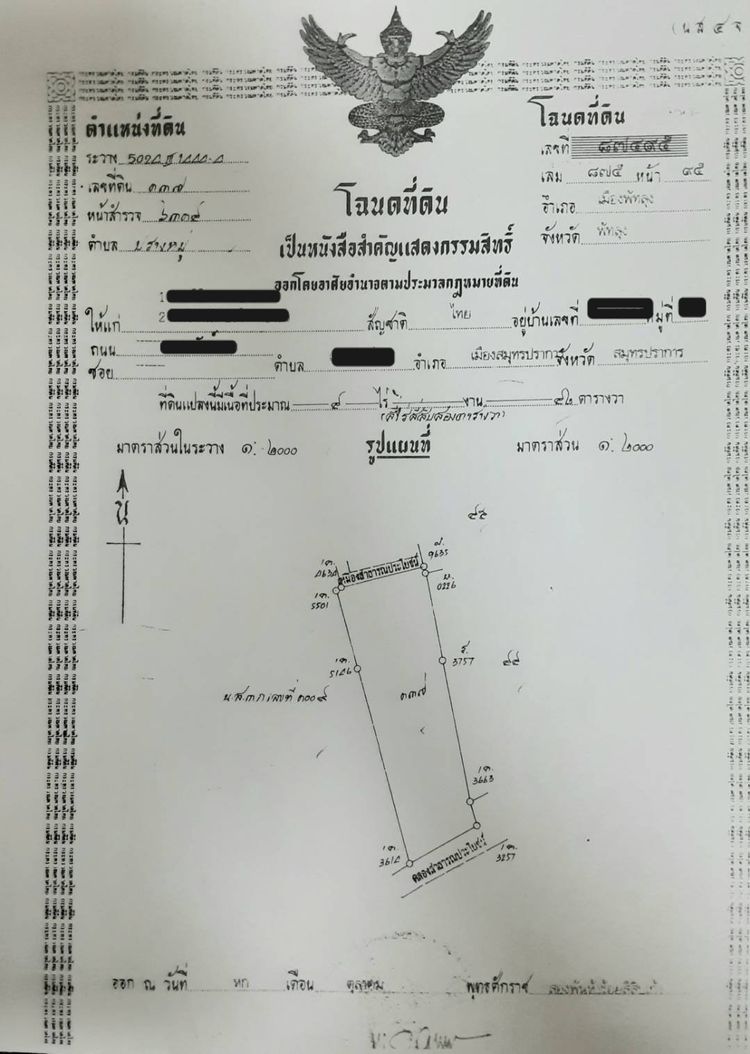 (น ส ๔ จ
ตำแหน่งที่ดิน
ระวาง
เลขที่ดิน ๓๓๗
หน้าสำรวจ
ตำบล
โฉนดที่ดิน
เลขที่ ๘๗๕๙๕
เล่ม ๘๗๕ หน้า ๙๕
อำเภอ เมืองพัทลุง
จังหวัด พัทลุง
โฉนดที่ดิน
เป็นหนังสือสำคัญแสดงกรรมสิทธิ์
ออกโดยอาศัยอำนาจตามประมวลกฎหมายที่ดิน
1
ให้แก่ 2 สัญชาติ ไทย อยู่บ้านเลขที่ หมู่ที่
ถนน
ซอย ตำบล อำเภอ เมืองสมุทรปราการ จังหวัด สมุทรปราการ
ที่ดินแปลงนี้มีเนื้อที่ประมาณ ๔ ไร่ งาน ๔๒ ตารางวา
(สี่ไร่สี่สิบสองตารางวา)
มาตราส่วนในระวาง ๑:๒๐๐๐ รูปแผนที่ มาตราส่วน ๑:๒๐๐๐
น
๔๕
9635
เหมืองสาธารณประโยชน์
0226
5501
3757
๔๔
๓๓๗
3663
คลองสาธารณประโยชน์
3257
ออก ณ วันที่ หก เดือน ตุลาคม พุทธศักราช